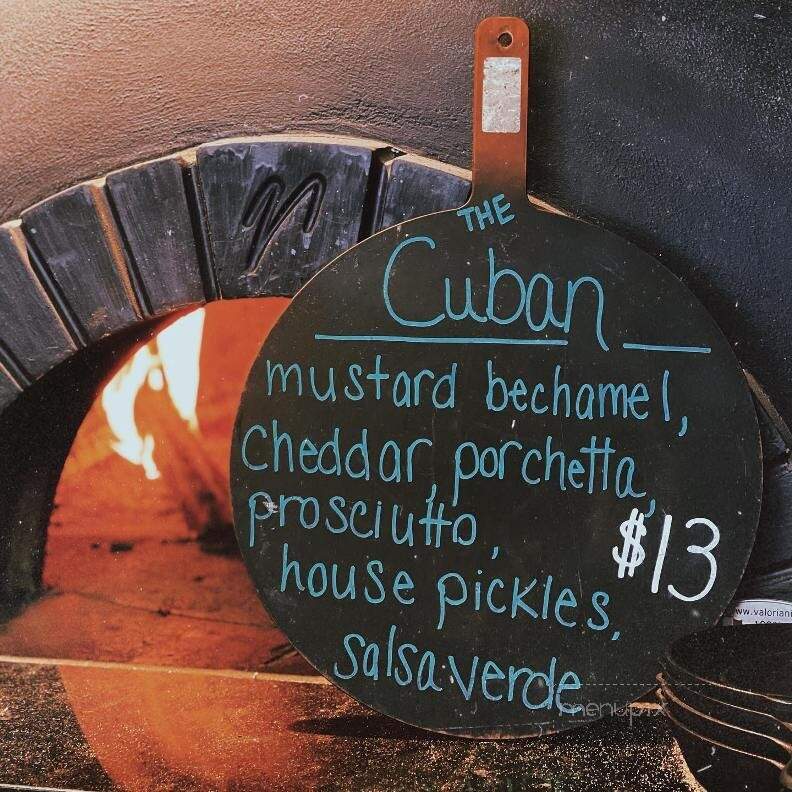 THE
Cuban
mustard bechamel,
cheddar, porchetta,
prosciutto,
$13
house pickles,
salsa verde
menupix
www.valoriani